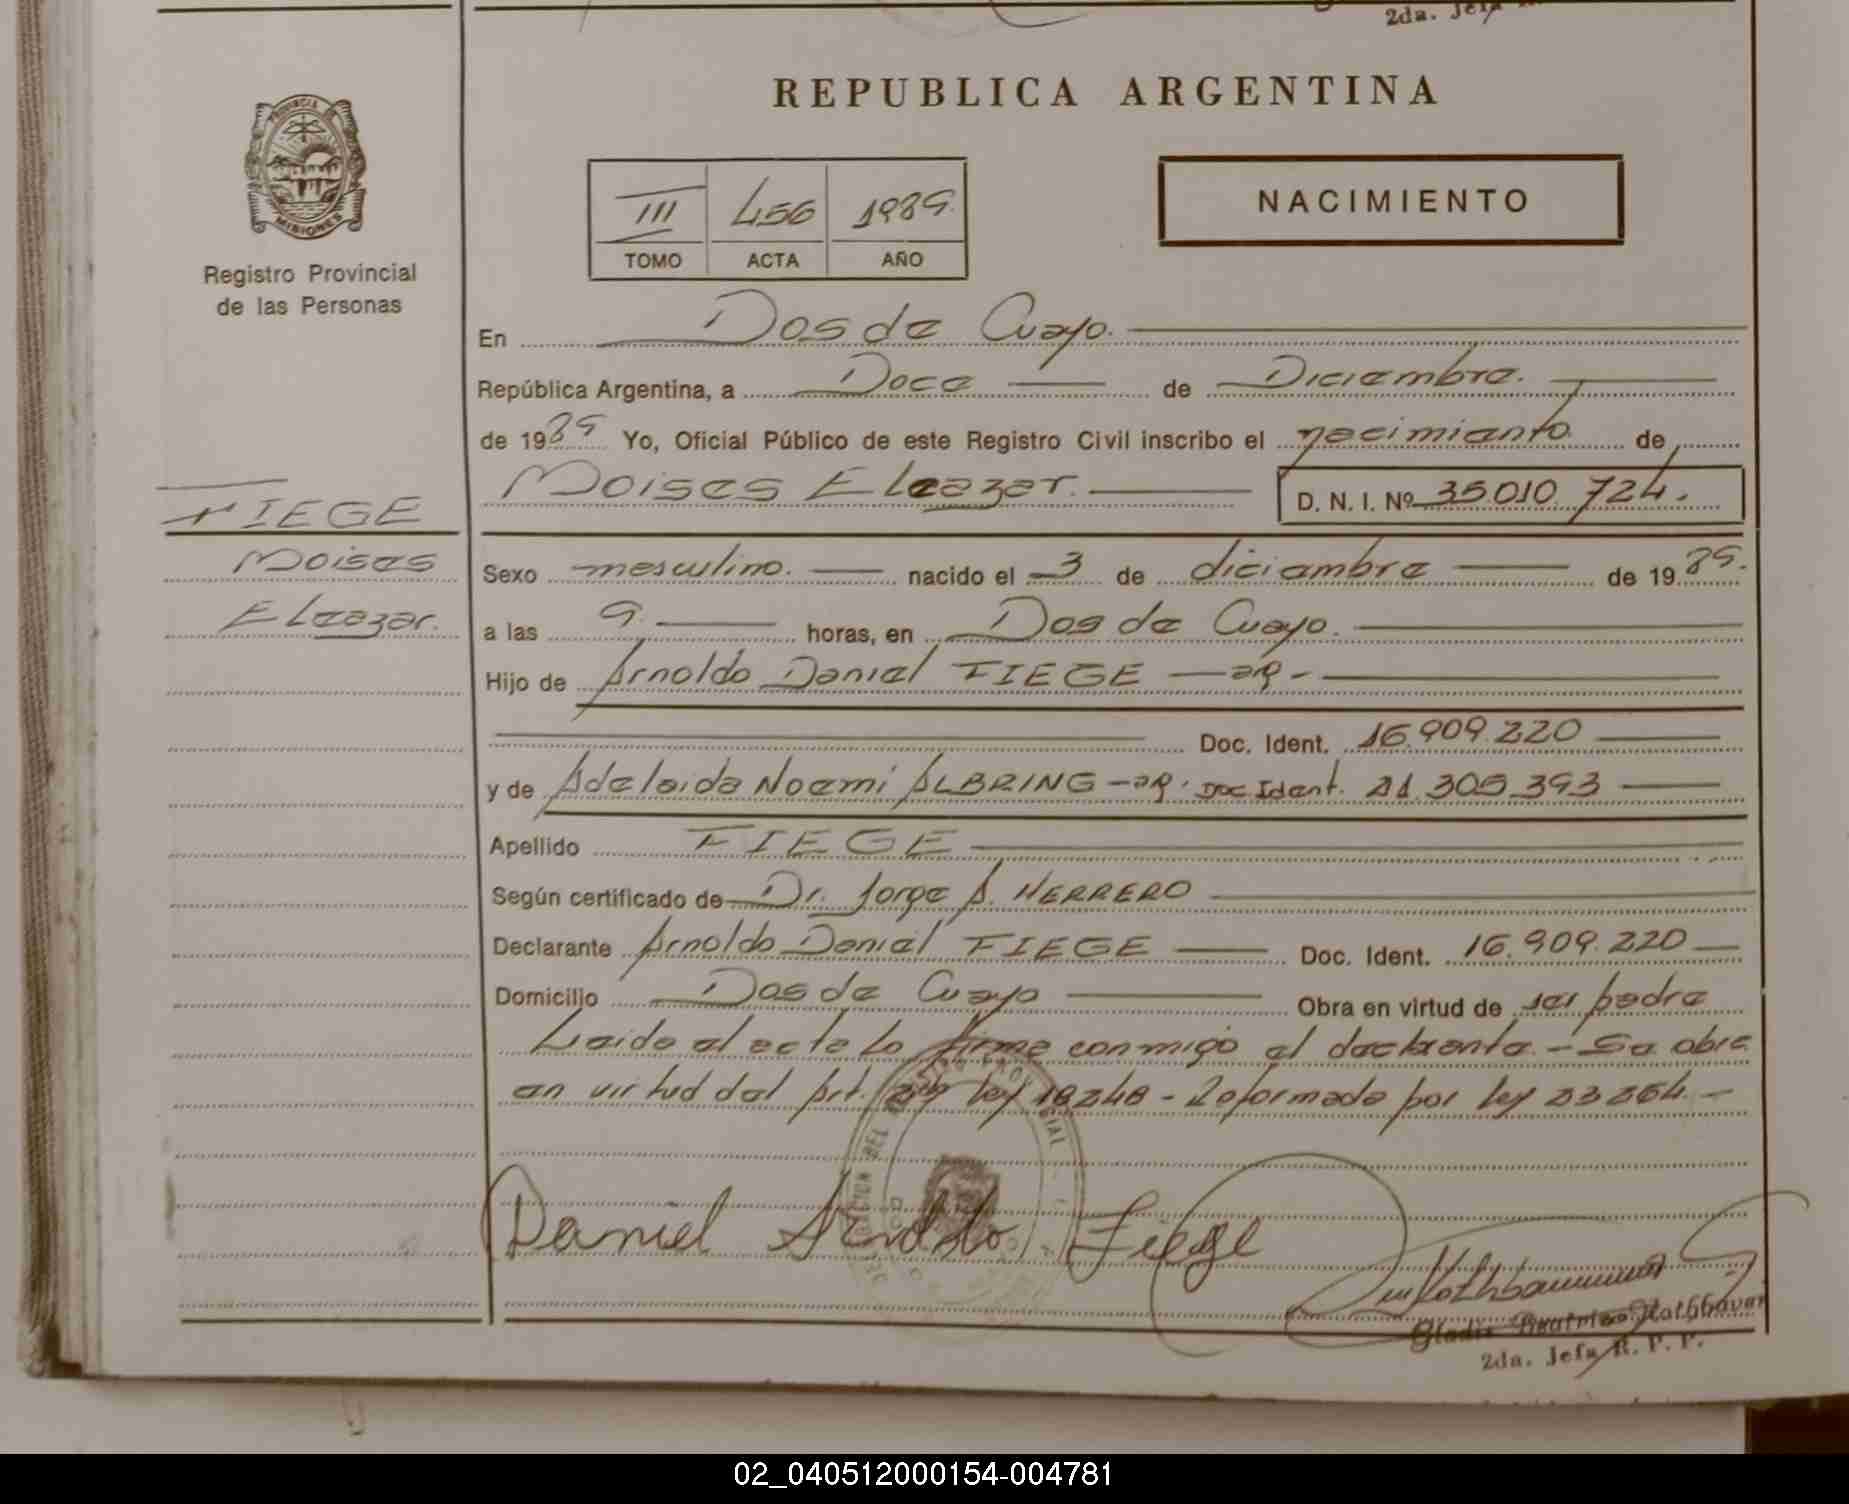 2da. Jefa
REPUBLICA ARGENTINA
PROVINCIA DE
MISIONES
Registro Provincial
de las Personas
III 456 1989.
TOMO ACTA AÑO
NACIMIENTO
En Dos de Cuayo.
República Argentina, a Doce de Diciembre.
de 1989 Yo, Oficial Público de este Registro Civil inscribo el nacimiento de
Moises Eleazar. D. N. I. Nº 35010.724.
FIEGE
Moises
Eleazar.
Sexo masculino. nacido el 3 de diciembre de 1989.
a las 9. horas, en Dos de Cuayo.
Hijo de Arnoldo Daniel FIEGE — ar -
Doc. Ident. 16.909.220
y de Adelaida Noemi ALBRING - ar. Doc Ident. 21.305.393
Apellido FIEGE
Según certificado de Dr. Jorge A. HERRERO
Declarante Arnoldo Daniel FIEGE Doc. Ident. 16.909.220
Domicilio Dos de Cuayo Obra en virtud de ser padre
Leida el acta la firma conmigo el declarante. - Se obra
en virtud del Art. ley 18248 - Reformada por ley 23264. -
Daniel Arnoldo Fiege
2da. Jefa R. P. P.
02_040512000154-004781